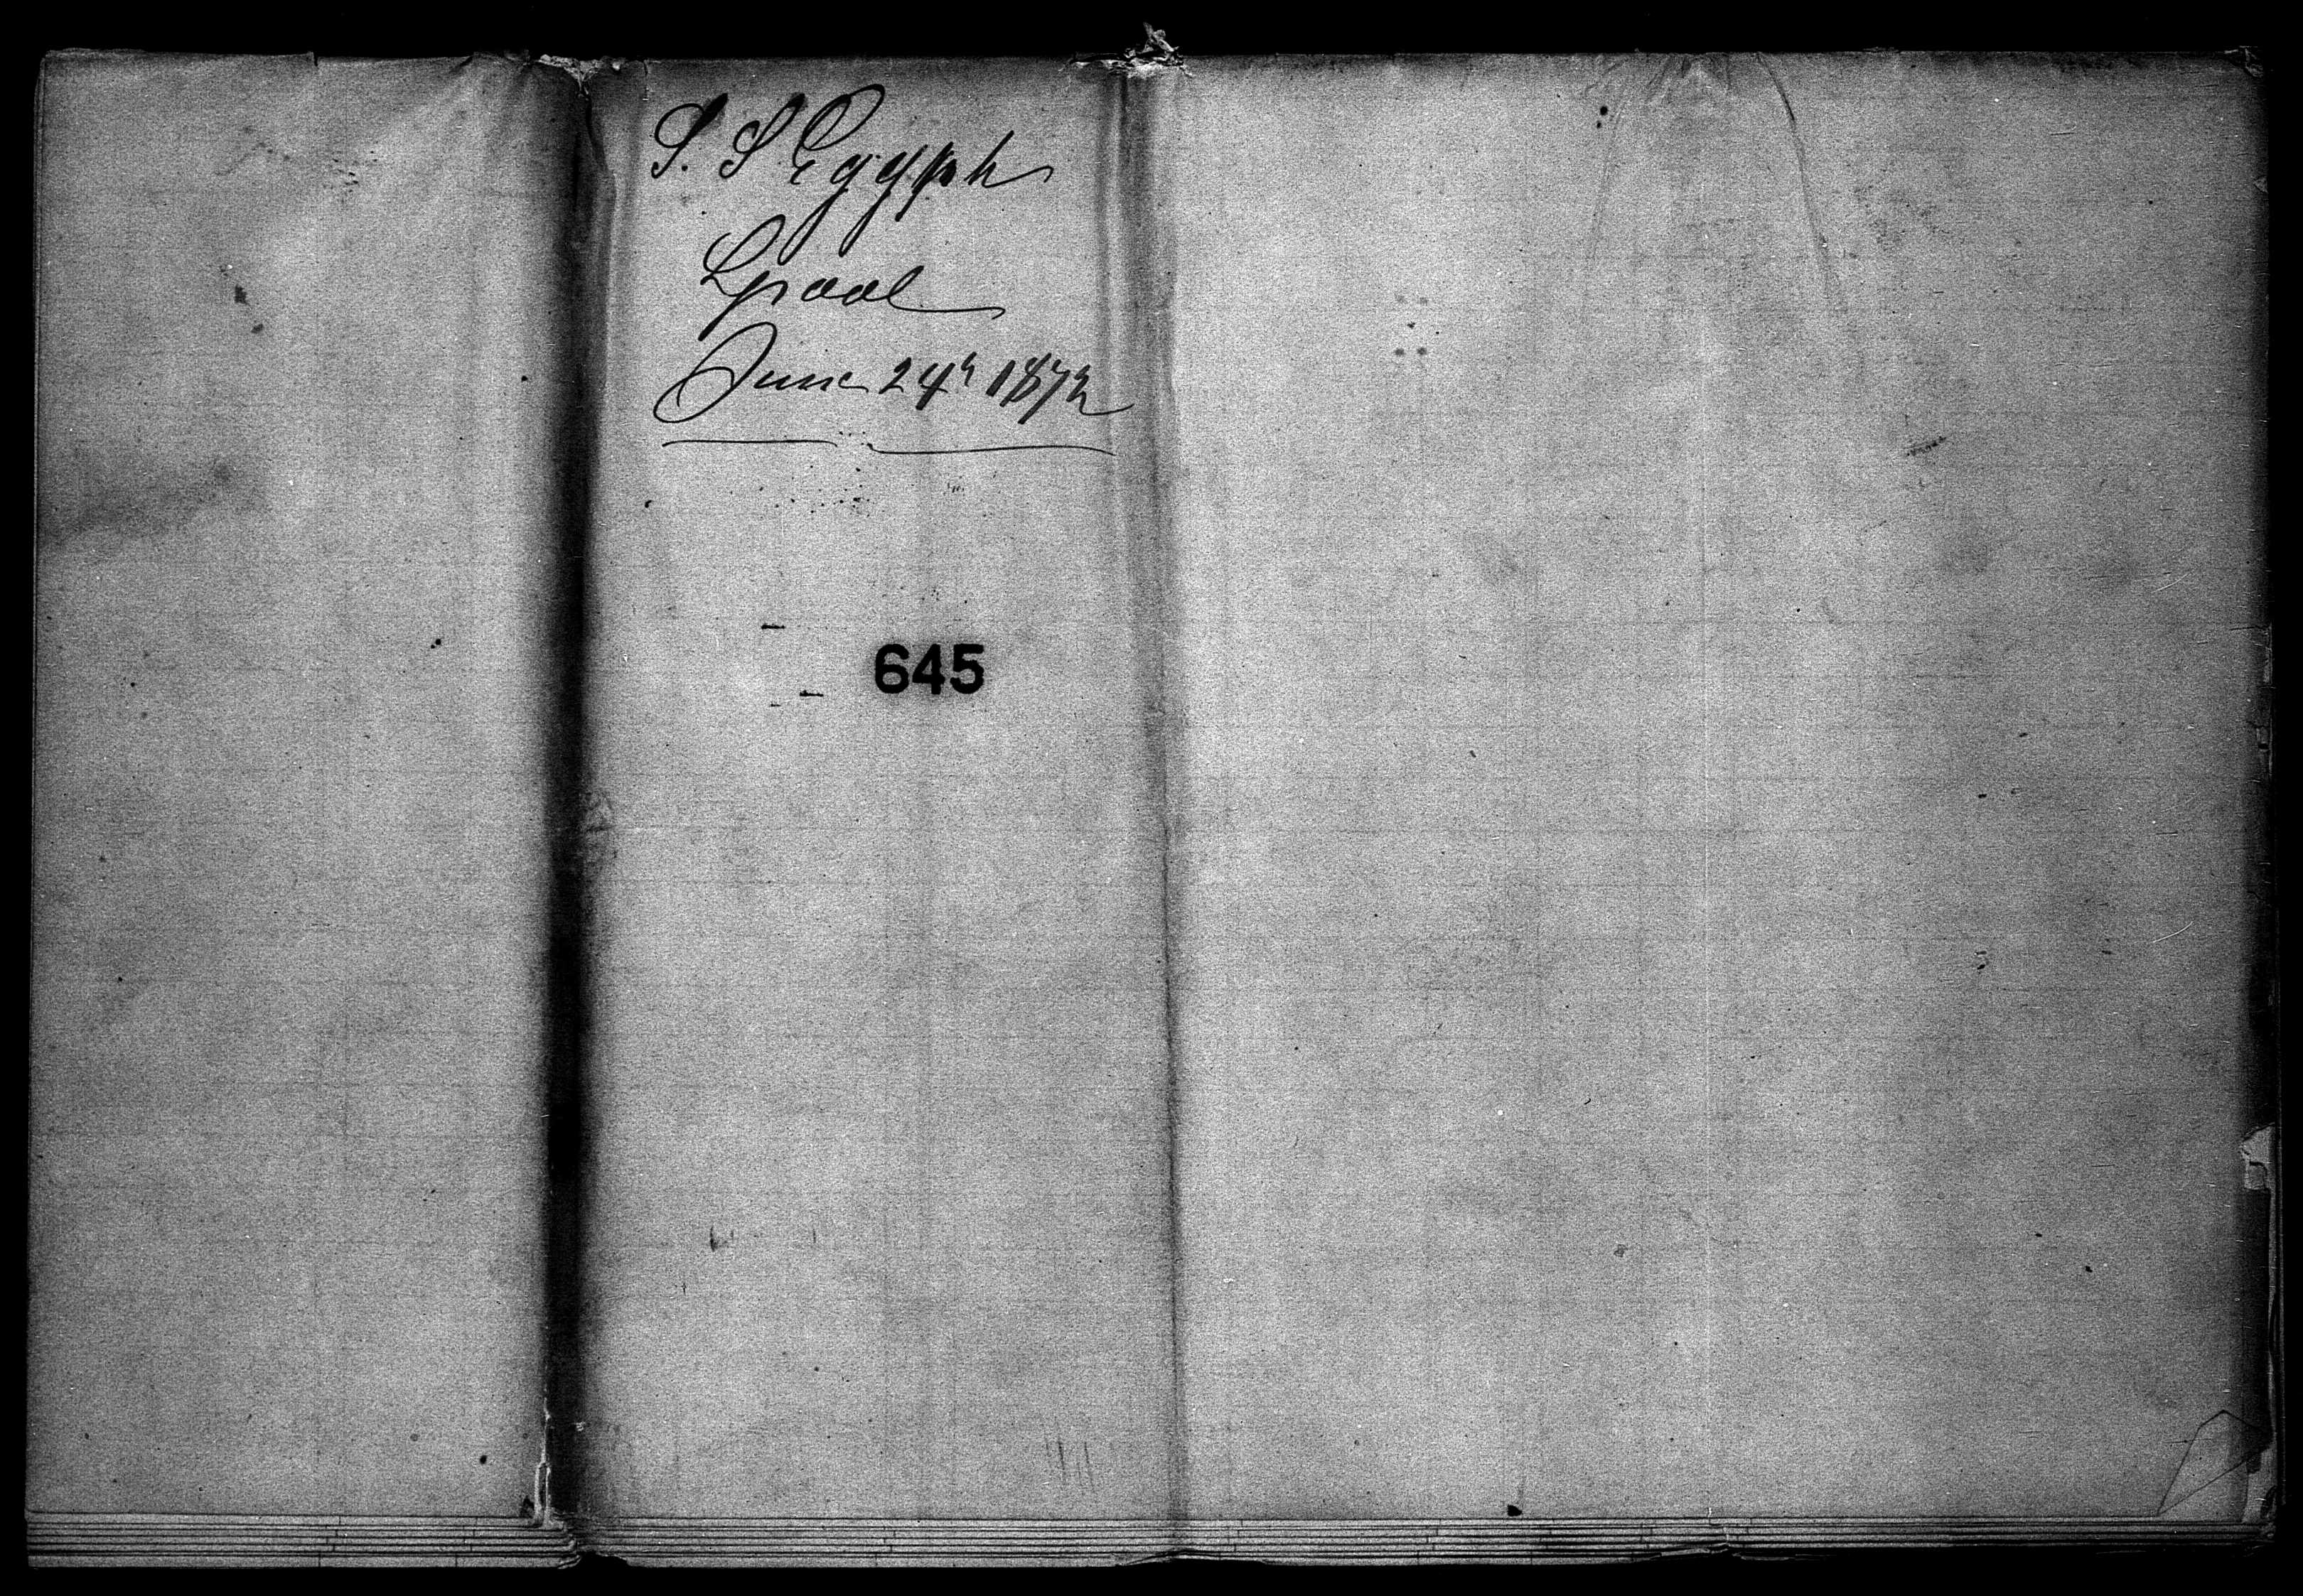 S. S. Egypt
Lpool
June 24th 1872
645